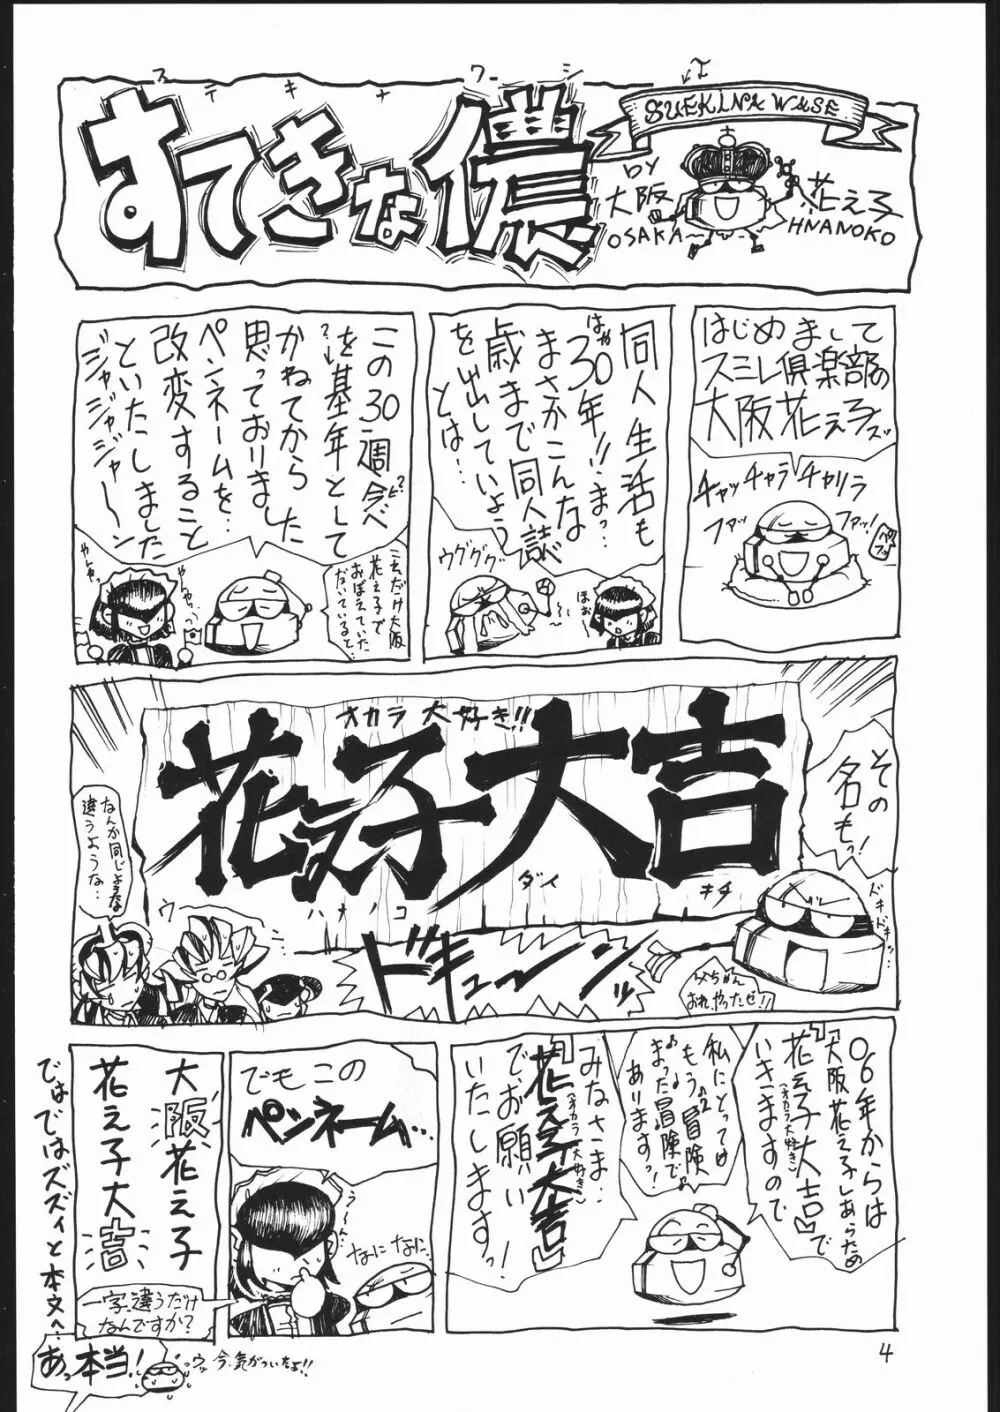 ステキナワシ
すてきな儂
SUEKINA WASE
BY
大阪
花え子
OSAKA
HNANOKO
はじめまして
スミレ倶楽部の
大阪花え子ズッ
チャッチャラチャリラ
ファッ
ファッ!
同人生活も
はや
30年!!ま…っ
まさかこんな
歳まで同人誌
を出していよう
とは…
ウググググ
ほお
この30週今べ
を基年として
かねてから
思っておりました
ペンネームを…
改変すること
といたしました
ジャジャジャジャ〜〜ン
こえだけ大阪
花え子で
おぼえていた
だいていると…
その
名もっ!
オカラ大好き!!
花え子大吉
ハナノコ
ダイ
キチ
なんか同じような
違うような…
ウー
ドキューンッ
ドキドキッ
父ちゃん
おれ、やったぜ!!
06年からは
『大阪花え子』あらため
『花え子大吉』で
(オカラ大好き)
いきますので
私にとっては
もうの冒険
まった冒険で
ありますっ!
みなさま…
『花え子大吉』
(オカラ大好き)
でお願い
いたしますっ!
でもこの
ペンネーム…
う〜〜ん
なになに
大阪花え子
花え子大吉
一字違うだけ
なんですか?
ではではズズイと本文へ…
あっ本当!
ウッ今、気がついたよ!!
4